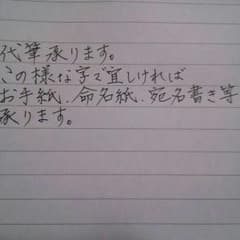 代筆承ります。
この様な字で宜しければ
お手紙、命名紙、宛名書き等
承ります。